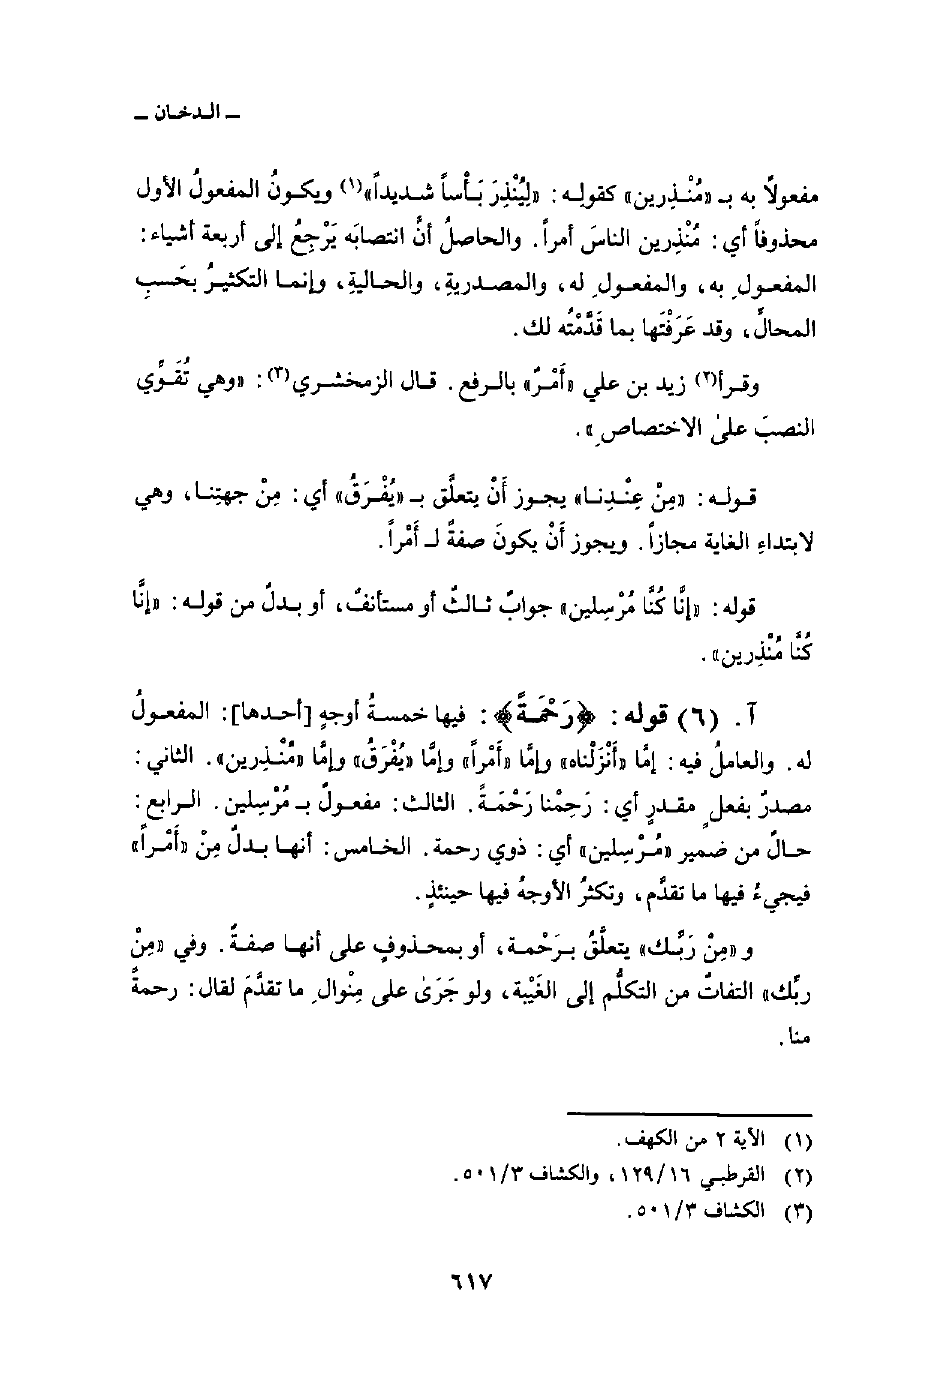 ـ الدخان ـ
مفعولاً به بـ «مُنْذِرين» كقولِه: «لِيُنْذِرَ بَأْساً شديداً»(١) ويكونُ المفعولُ الأول
محذوفاً أي: مُنْذِرين الناسَ أمراً. والحاصلُ أنَّ انتصابَه يَرْجِعُ إلى أربعة أشياء:
المفعولِ به، والمفعولِ له، والمصدريةِ، والحاليةِ، وإنما التكثيرُ بحَسَبِ
المحالِّ، وقد عَرَفْتَها بما قَدَّمْتُه لك.
وقرأ(٢) زيد بن علي «أَمْرٌ» بالرفع. قال الزمخشري(٣): «وهي تُقَوِّي
النصبَ على الاختصاصِ».
قوله: «مِنْ عِنْدِنا» يجوز أَنْ يتعلَّق بـ «يُفْرَقُ» أي: مِنْ جهتِنا، وهي
لابتداءِ الغاية مجازاً. ويجوز أَنْ يكونَ صفةً لـ أَمْراً.
قوله: «إنَّا كُنَّا مُرْسِلين» جوابٌ ثالثٌ أو مستأنفٌ، أو بدلٌ من قوله: «إنَّا
كُنَّا مُنْذِرين».
آ. (٦) قوله: ﴿رَحْمَةً﴾: فيها خمسةُ أوجهٍ [أحدها]: المفعولُ
له. والعاملُ فيه: إمَّا «أَنْزَلْناه» وإمَّا «أَمْراً» وإمَّا «يُفْرَقُ» وإمَّا «مُنْذِرين». الثاني:
مصدرٌ بفعلٍ مقدرٍ أي: رَحِمْنا رَحْمَةً. الثالث: مفعولٌ بـ مُرْسِلين. الرابع:
حالٌ من ضمير «مُرْسِلين» أي: ذوي رحمة. الخامس: أنها بدلٌ مِنْ «أَمْراً»
فيجيءُ فيها ما تقدَّم، وتكثرُ الأوجهُ فيها حينئذٍ.
و «مِنْ رَبِّك» يتعلَّقُ بـرَحْمة، أو بمحذوفٍ على أنها صفةٌ. وفي «مِنْ
ربِّك» التفاتٌ من التكلُّم إلى الغَيْبة، ولو جَرَىٰ على مِنْوالِ ما تقدَّمَ لقال: رحمةً
منا.
(١) الآية ٢ من الكهف.
(٢) القرطبي ١٢٩/١٦، والكشاف ٥٠١/٣.
(٣) الكشاف ٥٠١/٣.
٦١٧